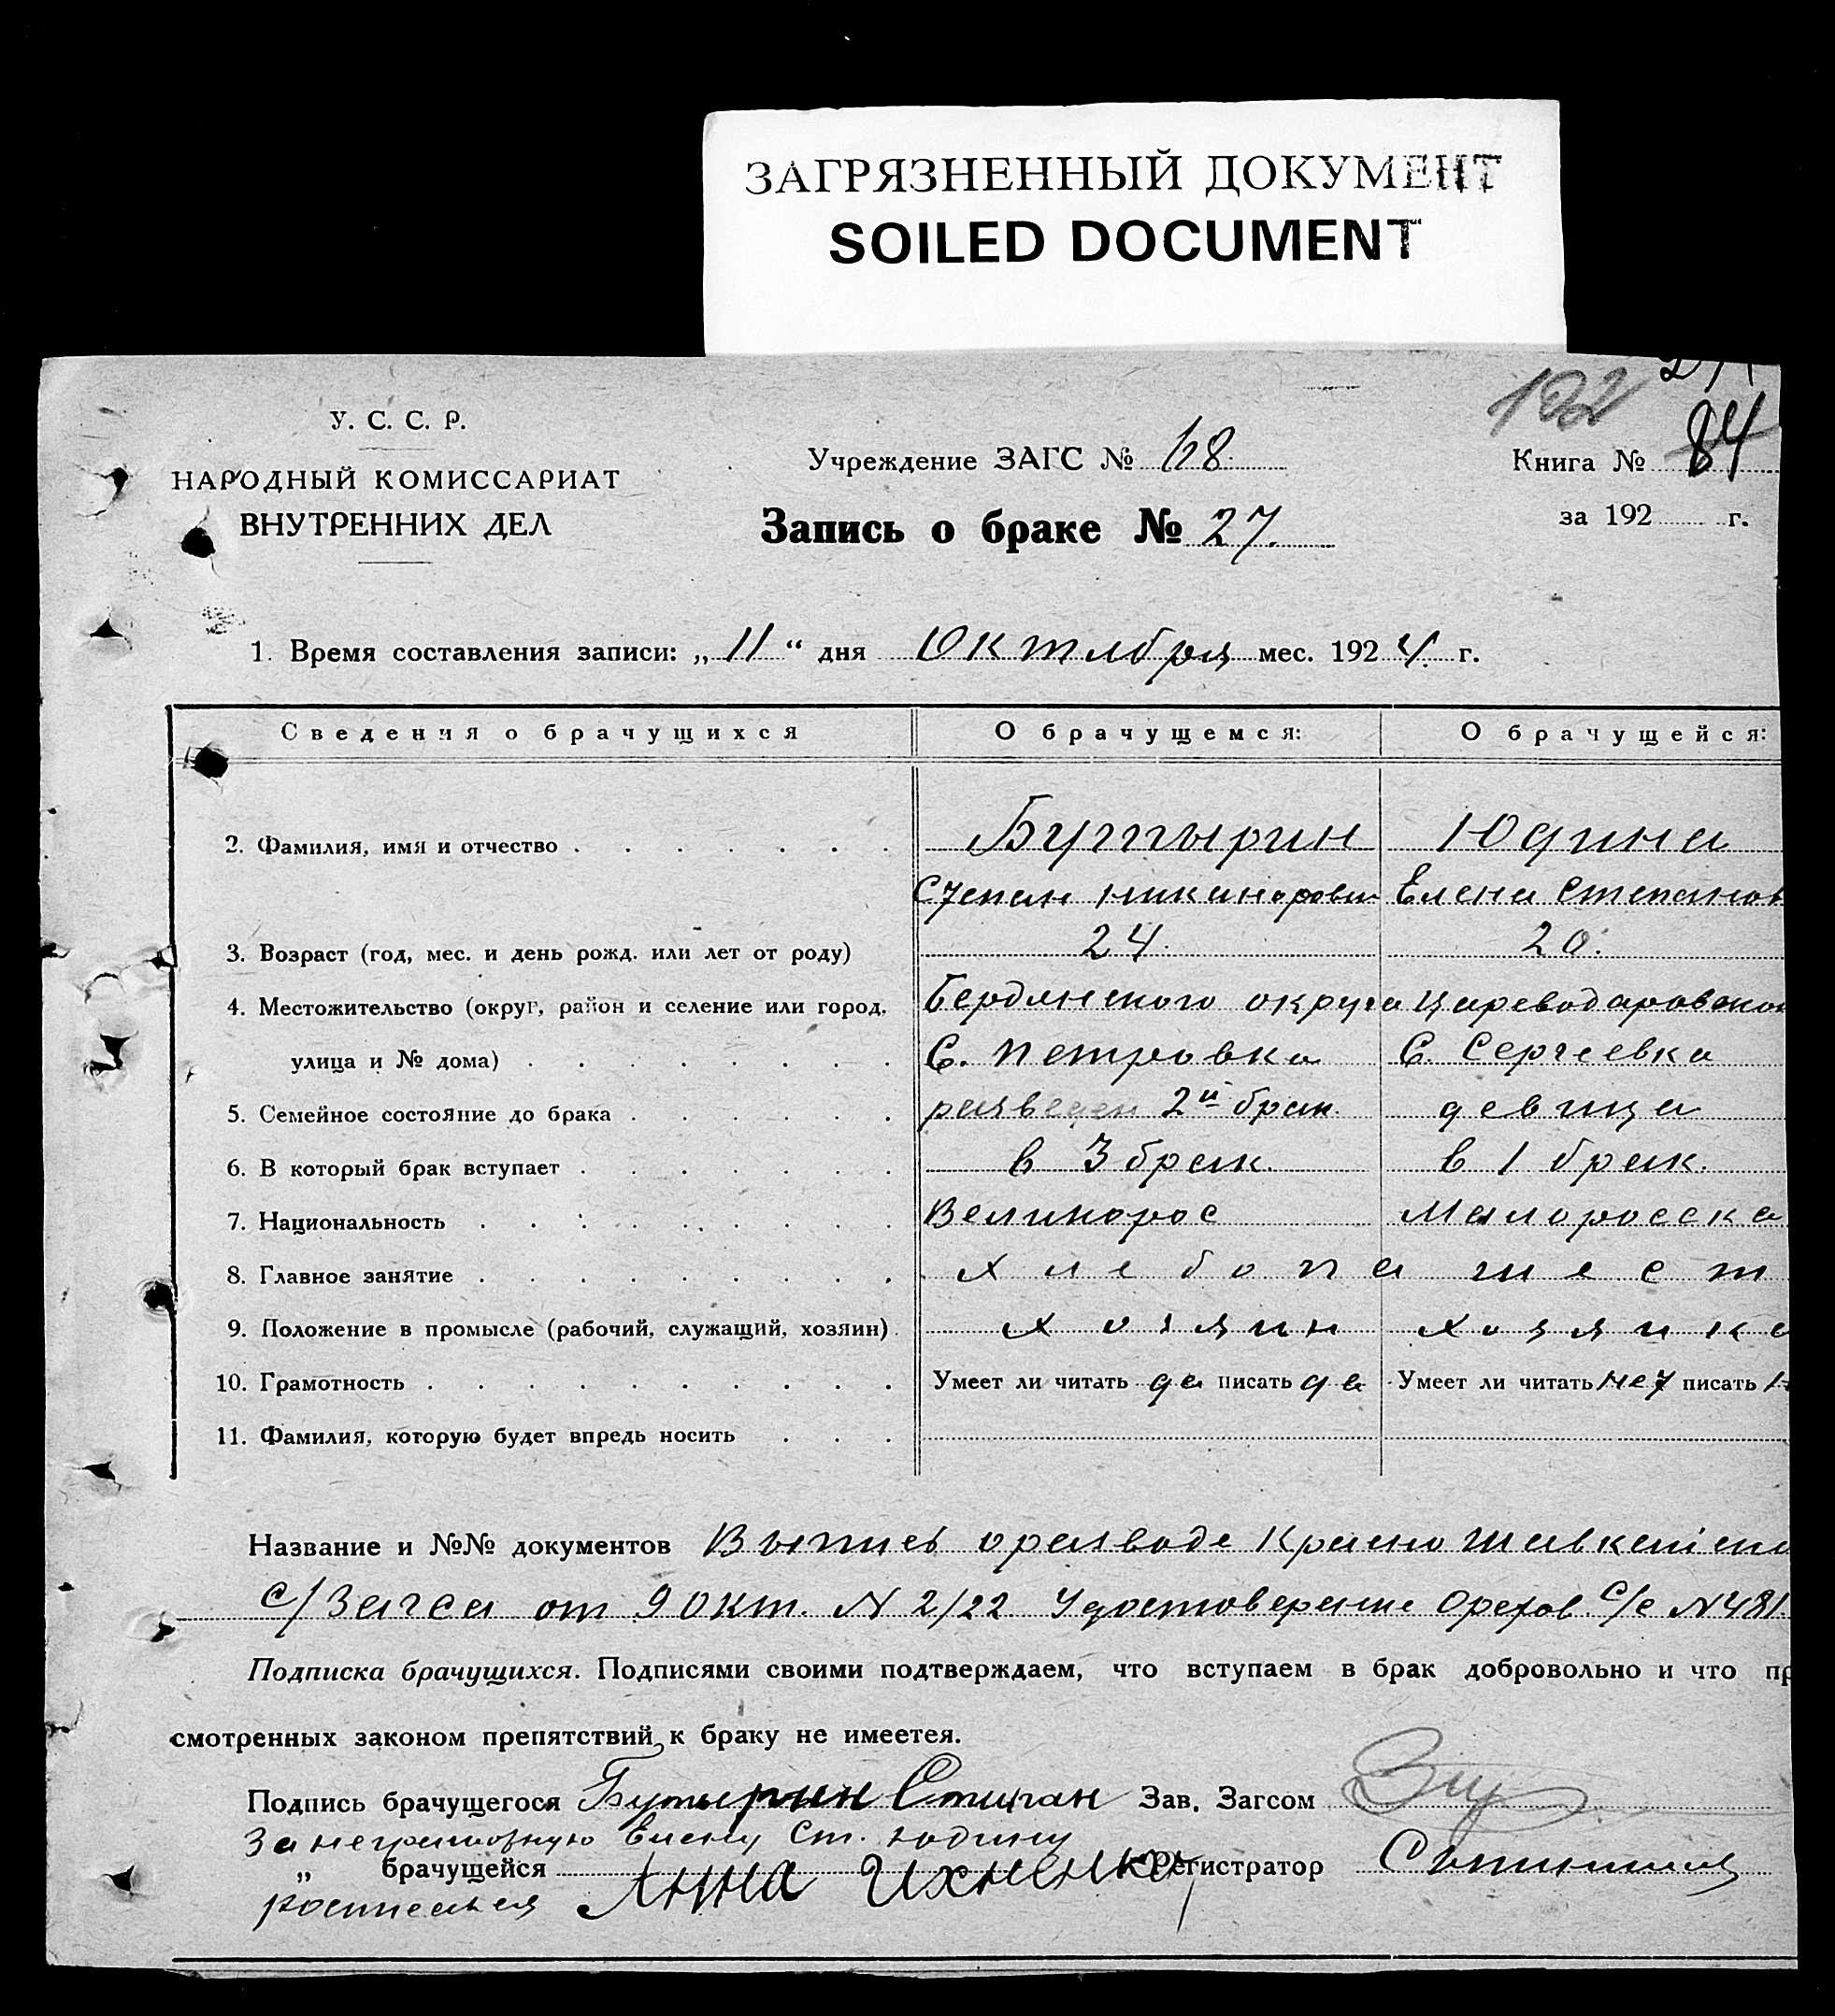 ЗАГРЯЗНЕННЫЙ ДОКУМЕНТ
SOILED DOCUMENT
У. С. С. Р.
НАРОДНЫЙ КОМИССАРИАТ
ВНУТРЕННИХ ДЕЛ
192
84
Учреждение ЗАГС № 68
Книга №
Запись о браке № 27.
за 192 г.
1. Время составления записи: „ 11 “ дня Октября мес. 1924 г.
Сведения о брачущихся О брачущемся: О брачущейся:
2. Фамилия, имя и отчество Бутырин Юдина
Степан Никанорович Елена Степанов
3. Возраст (год, мес. и день рожд. или лет от роду) 24. 20.
4. Местожительство (округ, район и селение или город, Бердянского округа Цареводаровского
улица и № дома) С. Петровка С. Сергеевка
5. Семейное состояние до брака разведен 2й брак. девица
6. В который брак вступает в 3 брак. в 1 брак.
7. Национальность Великорос Малоросска
8. Главное занятие хлебопашест
9. Положение в промысле (рабочий, служащий, хозяин) хозяин хозяйка
10. Грамотность Умеет ли читать да писать да Умеет ли читать нет писать
11. Фамилия, которую будет впредь носить
Название и №№ документов Выпись о разводе
С/Загса от 9 Окт. N 2/22 Удостоверение Орехов. С/с N 481
Подписка брачущихся. Подписями своими подтверждаем, что вступаем в брак добровольно и что пр
смотренных законом препятствий к браку не имеетея.
Подпись брачущегося Бутырин Степан Зав. Загсом
За неграмотную Елену Ст. Юдину
„ брачущейся Анна Ихненко Регистратор
росписалась